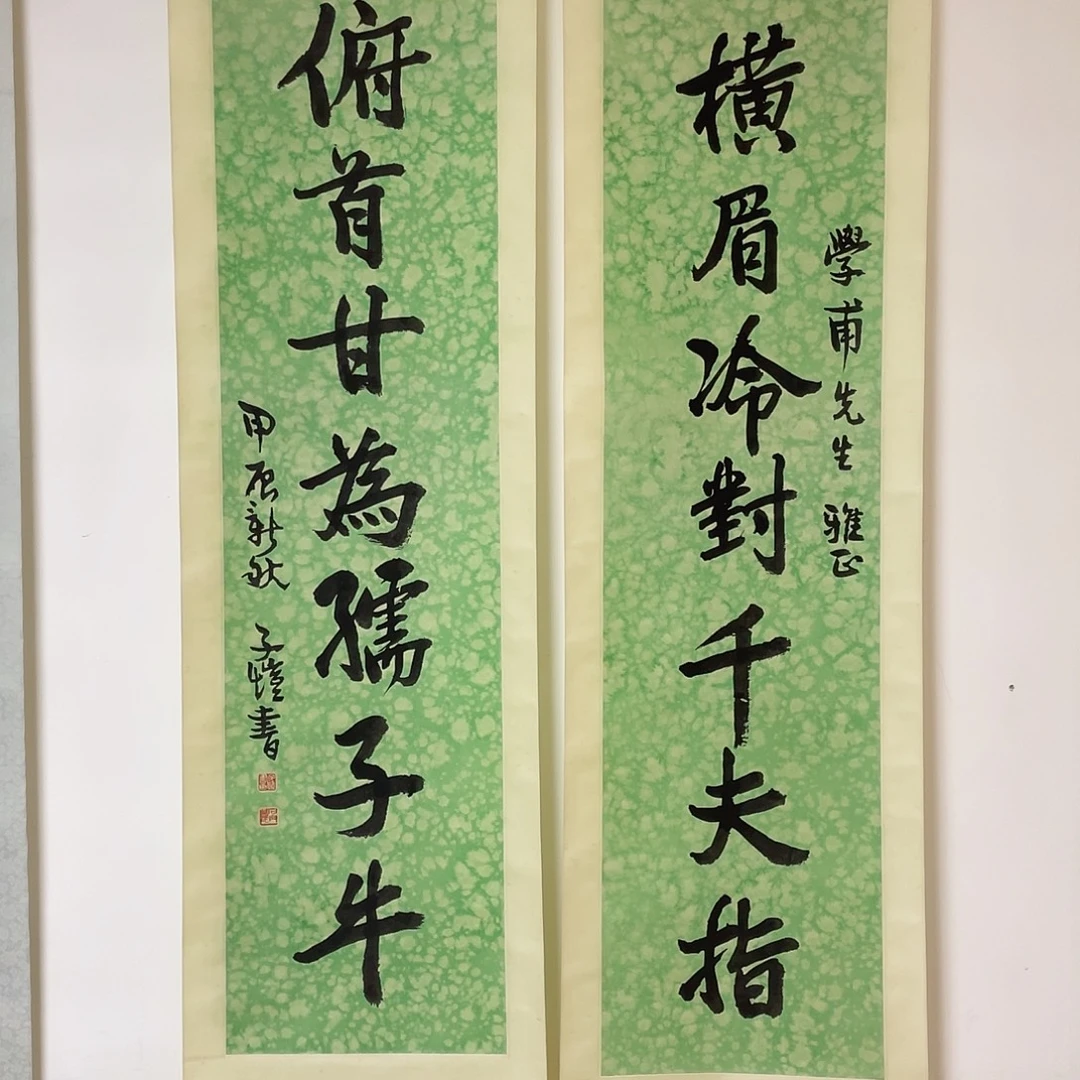 學甫先生 雅正
橫眉冷對千夫指
俯首甘為孺子牛
甲辰新秋 子愷書